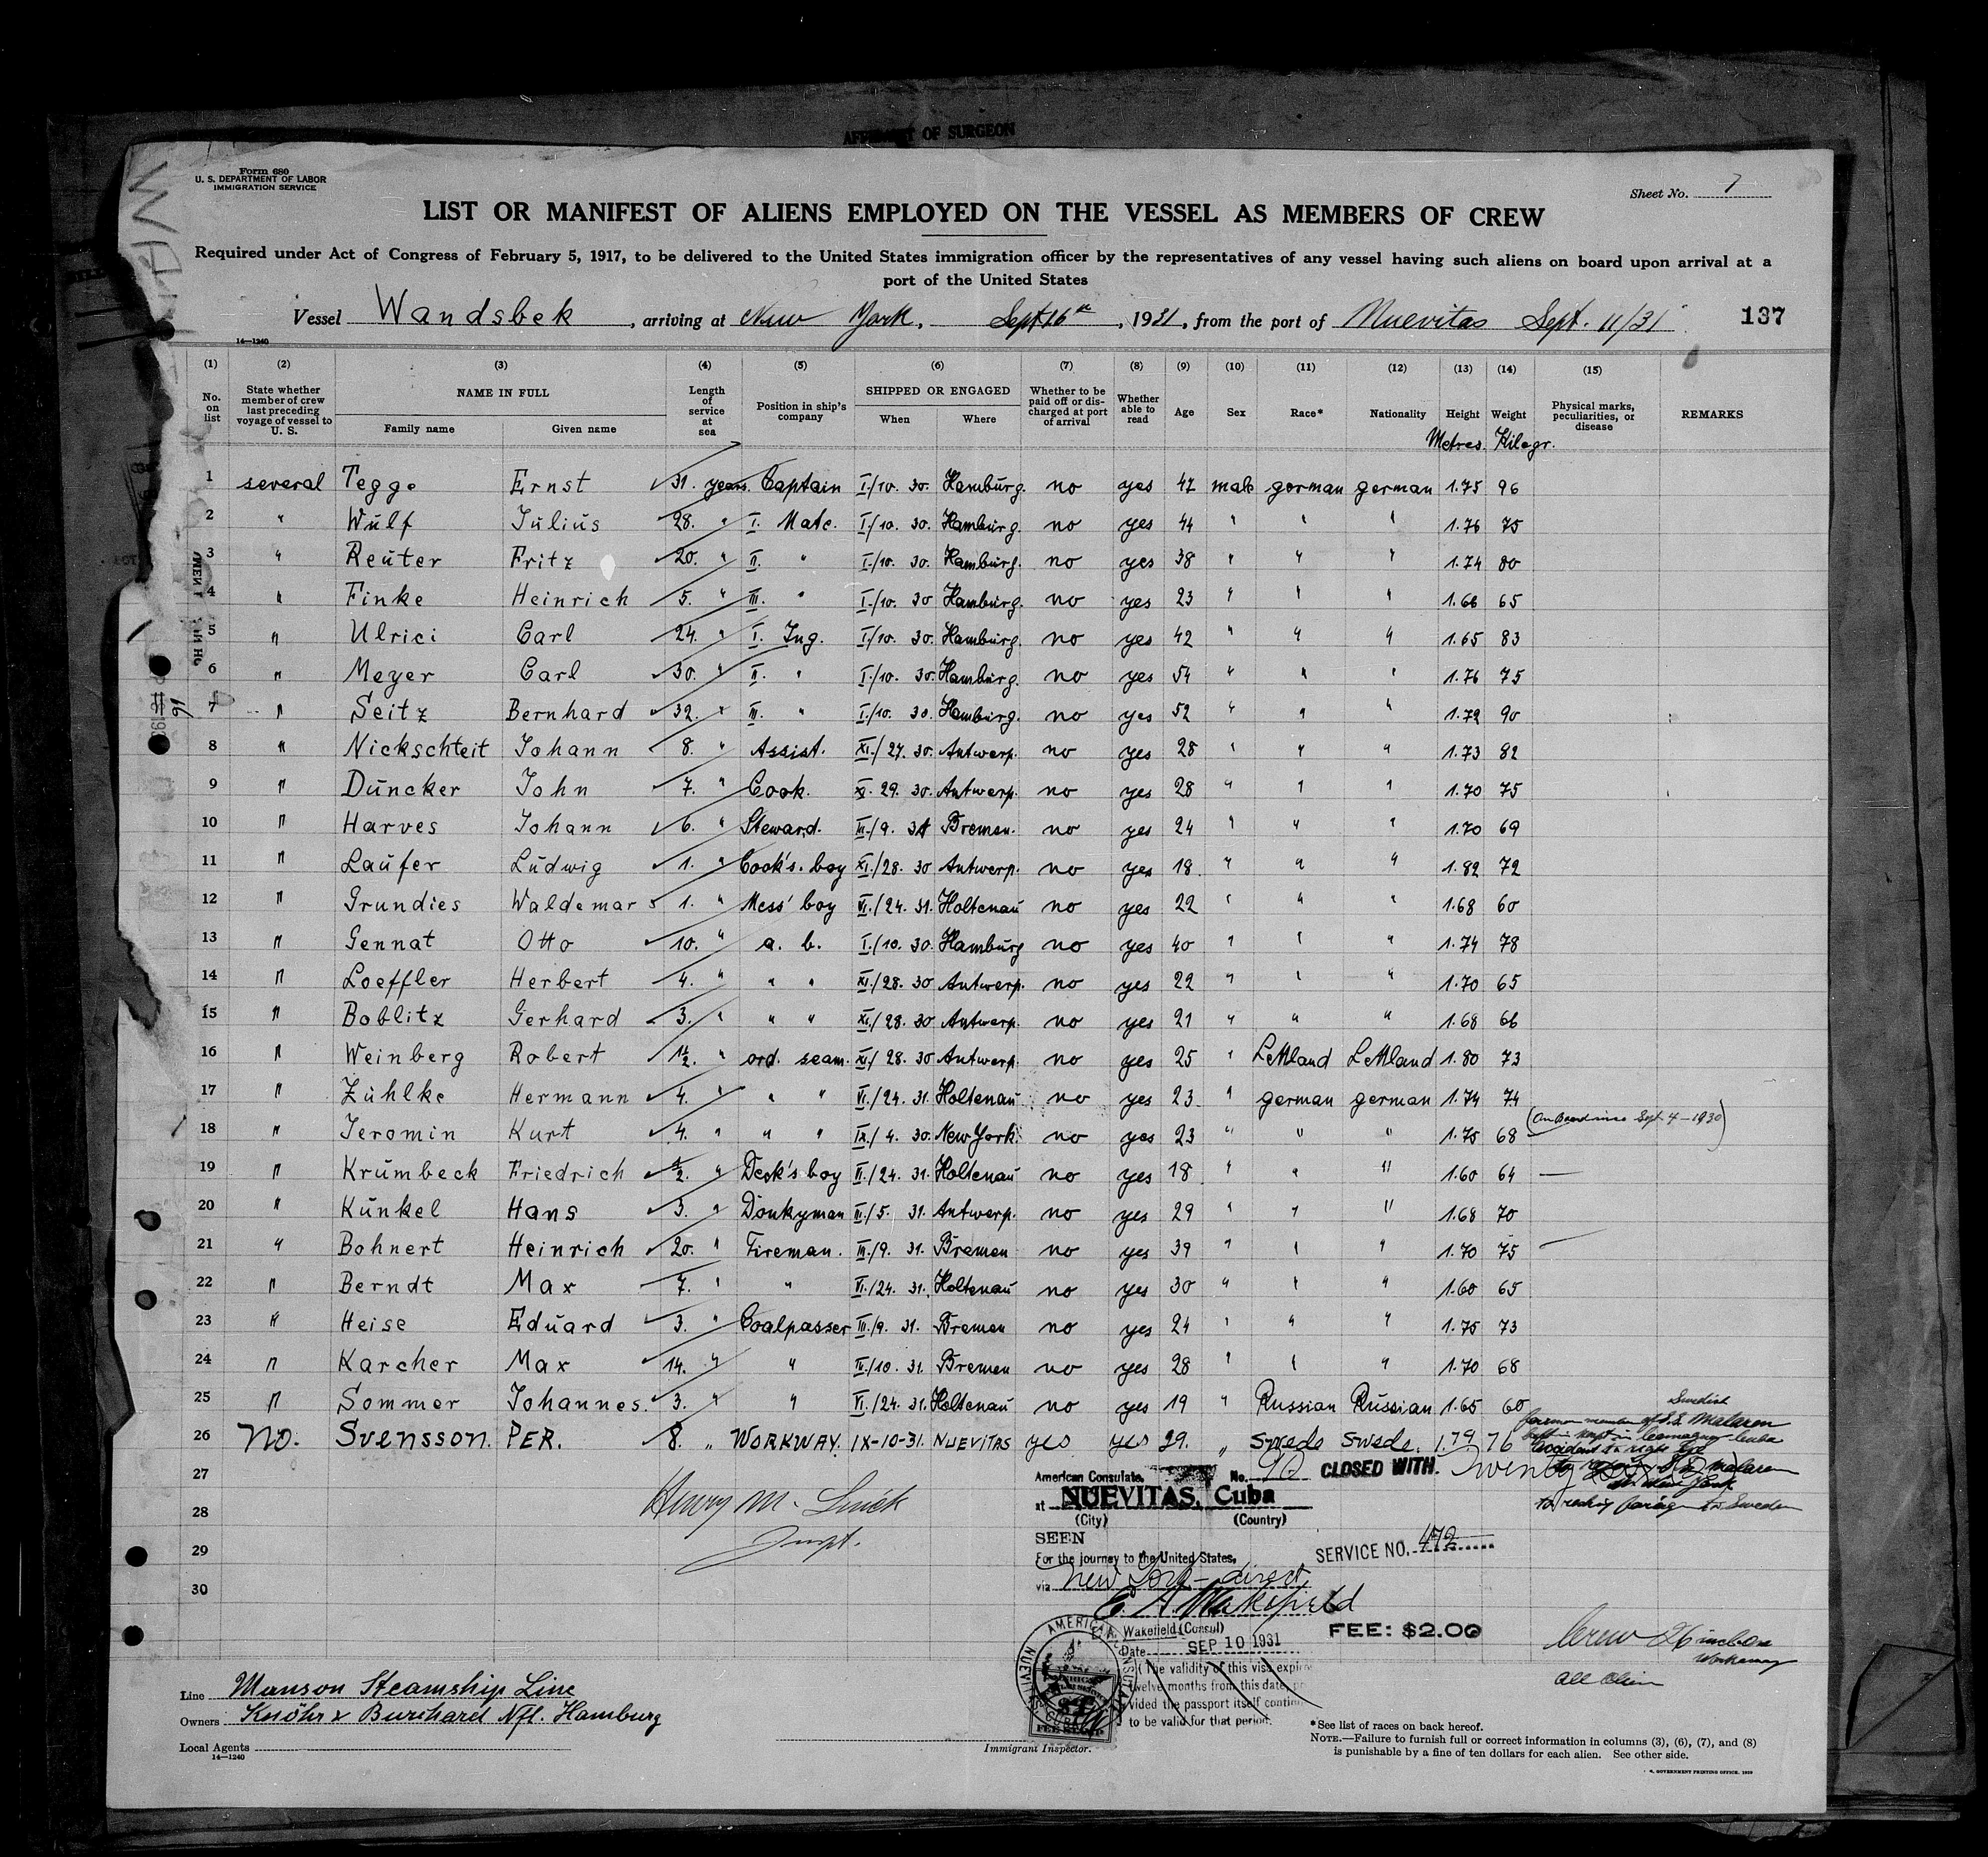 AFFIDAVIT OF SURGEON
Form 680
U. S. DEPARTMENT OF LABOR
IMMIGRATION SERVICE
Sheet No. 7
LIST OR MANIFEST OF ALIENS EMPLOYED ON THE VESSEL AS MEMBERS OF CREW
Required under Act of Congress of February 5, 1917, to be delivered to the United States immigration officer by the representatives of any vessel having such aliens on board upon arrival at a
port of the United States
Vessel Wandsbek, arriving at New York, Sept 16th, 1931, from the port of Nuevitas Sept. 11/31 137
14—1240
(1) (2) (3) (4) (5) (6) (7) (8) (9) (10) (11) (12) (13) (14) (15)
No. on list State whether member of crew last preceding voyage of vessel to U. S. NAME IN FULL Family name Given name Length of service at sea Position in ship's company SHIPPED OR ENGAGED When Where Whether to be paid off or discharged at port of arrival Whether able to read Age Sex Race* Nationality Height Weight Physical marks, peculiarities, or disease REMARKS
Metres Kilogr.
1 several Tegge Ernst 31. years. Captain I./10. 30. Hamburg. no yes 47 male german german 1.75 96
2 " Wulf Julius 28. " I. Mate. I./10. 30. Hamburg. no yes 44 " " " 1.76 75
3 " Reuter Fritz 20. " II. " I./10. 30. Hamburg. no yes 38 " " " 1.74 80
4 " Finke Heinrich 5. " III. " I./10. 30 Hamburg. no yes 23 " " " 1.66 65
5 " Ulrici Carl 24. " I. Ing. I./10. 30. Hamburg. no yes 42 " " " 1.65 83
6 " Meyer Carl 30. " II. " I./10. 30. Hamburg. no yes 54 " " " 1.76 75
7 " Seitz Bernhard 32. " III. " I./10. 30. Hamburg. no yes 52 " " " 1.72 90
8 " Nickschteit Johann 8. " Assist. XI./27. 30. Antwerp. no yes 28 " " " 1.73 82
9 " Duncker John 7. " Cook. XI. 29. 30. Antwerp. no yes 28 " " " 1.70 75
10 " Harves Johann 6. " Steward. III./9. 31 Bremen. no yes 24 " " " 1.70 69
11 " Laufer Ludwig 1. " Cook's. boy XI./28. 30 Antwerp. no yes 18. " " " 1.82 72
12 " Grundies Waldemar 1. " Mess' boy VI./24. 31. Holtenau no yes 22 " " " 1.68 60
13 " Gennat Otto 10. " a. b. I./10. 30. Hamburg no yes 40 " " " 1.74 78
14 " Loeffler Herbert 4. " " " XI./28. 30 Antwerp. no yes 22 " " " 1.70 65
15 " Boblitz Gerhard 3. " " " XI./28. 30 Antwerp. no yes 21 " " " 1.68 66
16 " Weinberg Robert 1½. " ord. seam. XI./28. 30 Antwerp. no yes 25 " Lettland Lettland 1.80 73
17 " Zühlke Hermann 4. " " " VI./24. 31. Holtenau no yes 23. " german german 1.74 74
18 " Jeromin Kurt 4. " " " IX./4. 30. New York. no yes 23 " " " 1.75 68 (On Board since Sept 4—1930)
19 " Krumbeck Friedrich ½. " Deck's boy VI./24. 31. Holtenau no yes 18 " " " 1.60 64 —
20 " Kunkel Hans 3. " Donkyman III./5. 31. Antwerp. no yes 29 " " " 1.68 70
21 " Bohnert Heinrich 20. " Fireman. III./9. 31. Bremen no yes 39 " " " 1.70 75 —
22 " Berndt Max 7. " " VI./24. 31. Holtenau no yes 30 " " " 1.60 65
23 " Heise Eduard 3. " Coalpasser III./9. 31. Bremen no yes 24 " " " 1.75 73
24 " Karcher Max 14. " " III./10. 31. Bremen no yes 28 " " " 1.70 68
25 " Sommer Johannes. 3. " " VI./24. 31. Holtenau no yes 19 " Russian Russian 1.65 60
26 No. Svensson. PER. 8. " WORKWAY. IX-10-31. NUEVITAS yes yes 29. " Swede Swede. 1.79 76
Swedish
member of S.S. Malaren
Camaguey Cuba
accident to right eye
S.S. Malaren
New York
to Sweden
27
28
29
30
American Consulate, No. 90 CLOSED WITH. Twenty six (26)
at NUEVITAS, Cuba
(City) (Country)
SEEN
For the journey to the United States,
via New York - direct
SERVICE NO. 472
E. A. Wakefield
E. A. Wakefield (Consul)
FEE: $2.00
Date SEP 10 1931
(The validity of this visa expires
twelve months from this date, pro
vided the passport itself continues
to be valid for that period.
AMERICAN CONSULAR
NUEVITAS, CUBA
FEE STAMP
Henry M.
Inspt.
Crew 26 including
Workaway
all alien
Line Munson Steamship Line
Owners Knöhr & Burchard Nfl. Hamburg
Local Agents
14—1240
Immigrant Inspector.
*See list of races on back hereof.
NOTE.—Failure to furnish full or correct information in columns (3), (6), (7), and (8)
is punishable by a fine of ten dollars for each alien. See other side.
U. S. GOVERNMENT PRINTING OFFICE. 1929